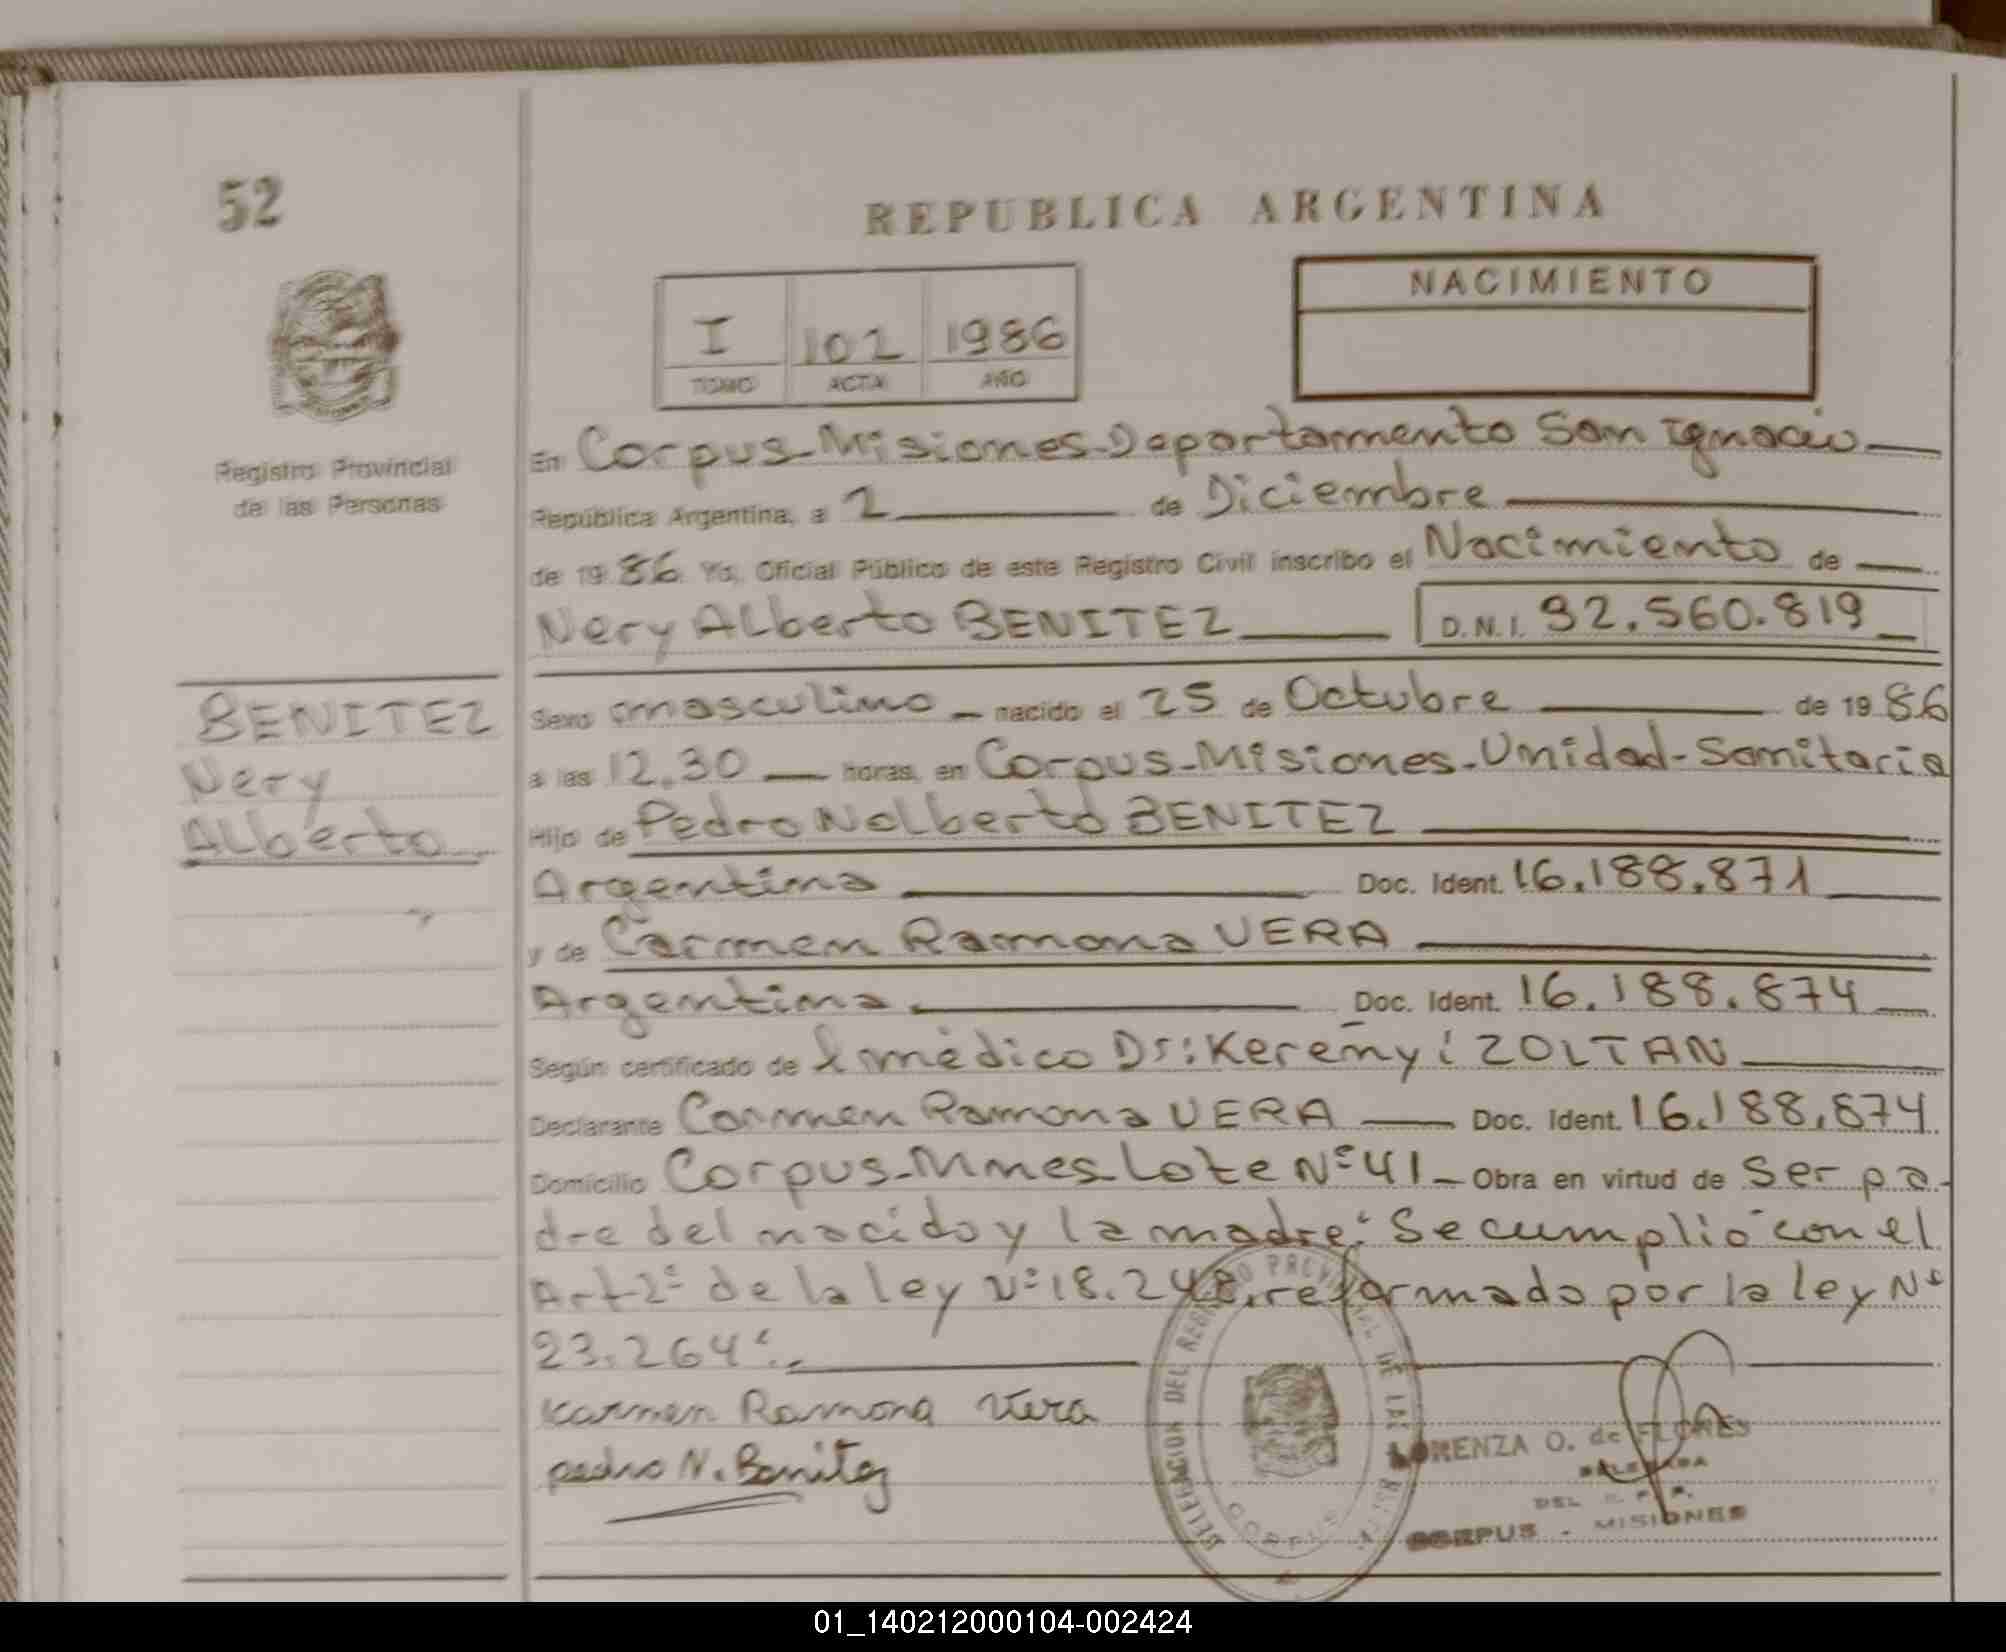 52
REPUBLICA ARGENTINA
NACIMIENTO
I 102 1986
TOMO ACTA AÑO
Registro Provincial
de las Personas
En Corpus-Misiones-Departamento San Ignacio
República Argentina, a 2 de Diciembre
de 1986 Yo, Oficial Público de este Registro Civil inscribo el Nacimiento de
Nery Alberto BENITEZ D.N.I. 92.560.819
BENITEZ
Nery
Alberto
Sexo masculino nacido el 25 de Octubre de 1986
a las 12.30 horas, en Corpus-Misiones-Unidad-Sanitaria
Hijo de Pedro Nolberto BENITEZ
Argentina Doc. Ident. 16.188.871
y de Carmen Ramona VERA
Argentina Doc. Ident. 16.188.874
Según certificado de médico Dr: Kereñyi ZOLTAN
Declarante Carmen Ramona VERA Doc. Ident. 16.188.874
Domicilio Corpus-Mnes-Lote Nº 41 - Obra en virtud de Ser pa-
dre del nacido y la madre: Se cumplió con el
Art-2º de la ley Nº 18.248, reformado por la ley Nº
23.264
Karmen Ramona Vera
pedro N. Benitez
DELEGACION DEL REGISTRO PROVINCIAL DE LAS
CORPUS
LORENZA O. de FLORES
DEL
CORPUS - MISIONES
01_140212000104-002424